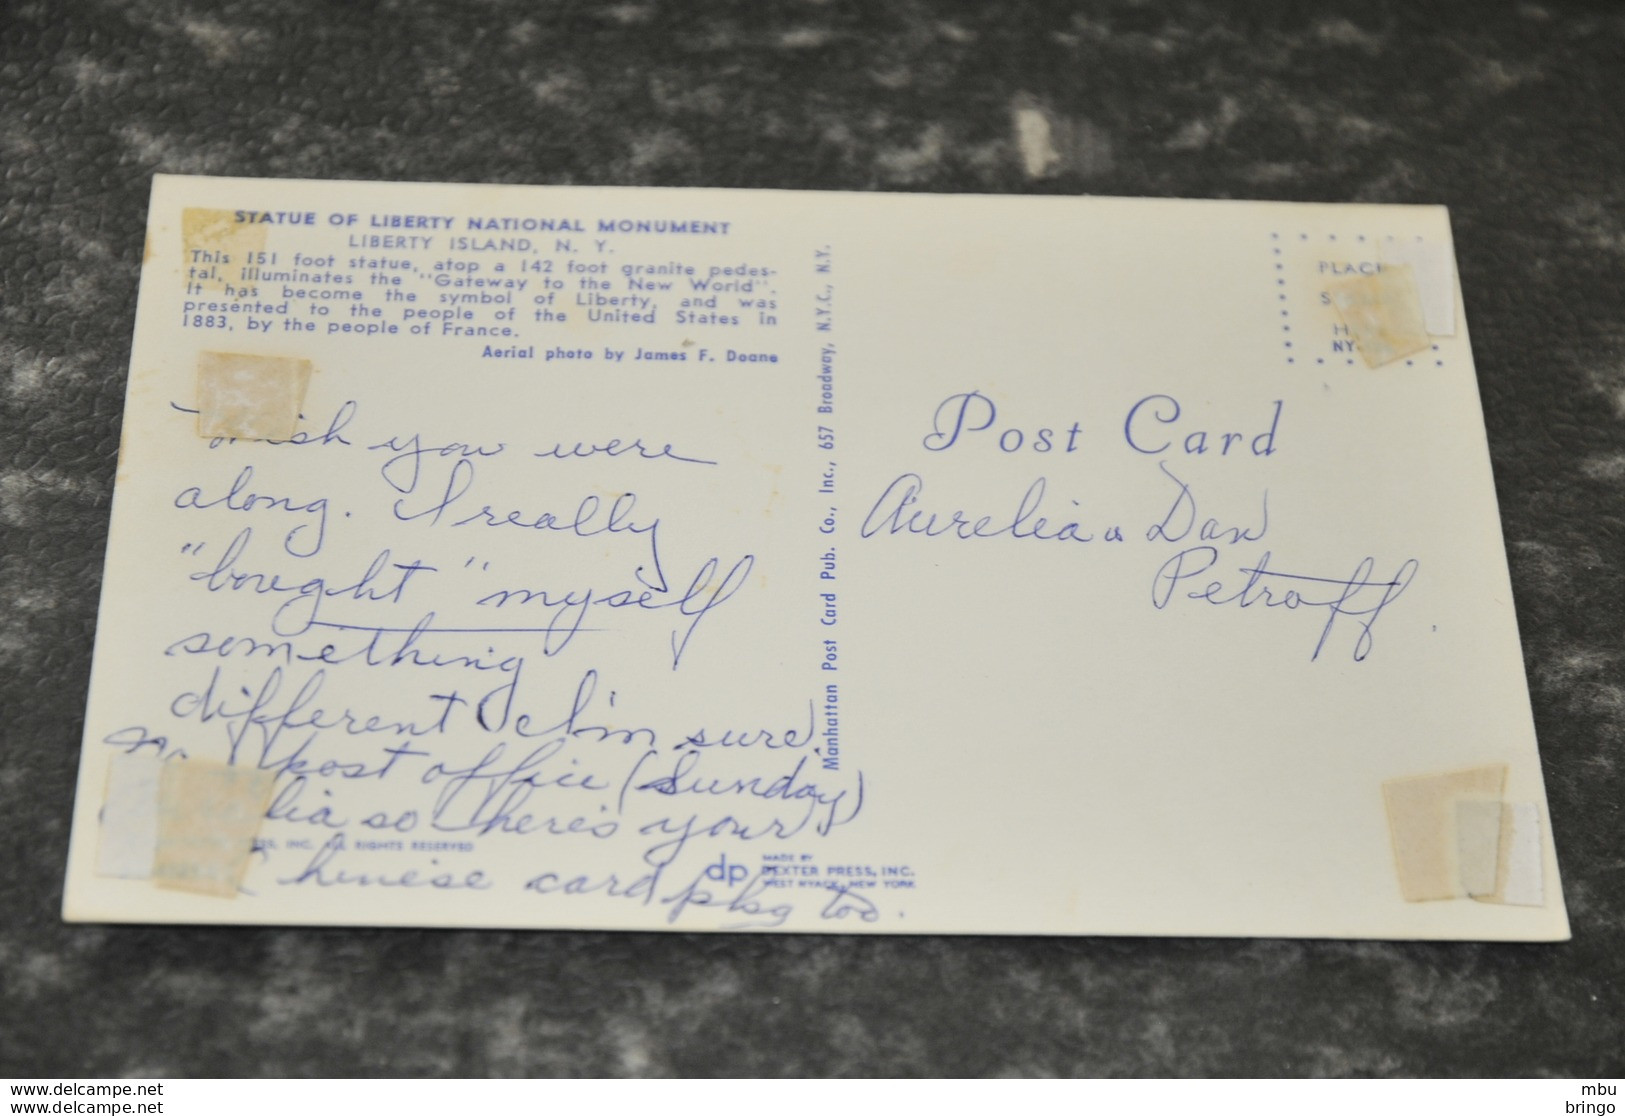 STATUE OF LIBERTY NATIONAL MONUMENT
LIBERTY ISLAND, N. Y.
This 151 foot statue, atop a 142 foot granite pedes-
tal, illuminates the "Gateway to the New World".
It has become the symbol of Liberty, and was
presented to the people of the United States in
1883, by the people of France.
Aerial photo by James F. Doane
Wish you were
along. I really
"bought" myself
something
different I'm sure.
post office (Sunday)
so here's your
Chinese card pkg too.
INC. ALL RIGHTS RESERVED
dp MADE BY
DEXTER PRESS, INC.
WEST NYACK, NEW YORK
Manhattan Post Card Pub. Co., Inc., 657 Broadway, N.Y.C., N.Y.
PLACE
Post Card
Aurelia & Dan
Petroff
www.delcampe.net
www.delcampe.net
mbu
bringo